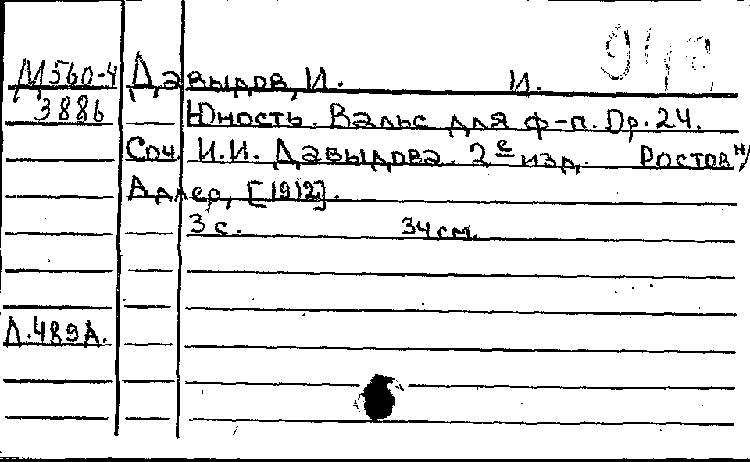 М560-4 Давыдов, И. И.
3886 Юность. Вальс для ф-п. Op. 24.
Соч. И.И. Давыдова. 2е изд. Ростов н/
Адлер, [1912].
3 с. 34 см.
Д.489А.